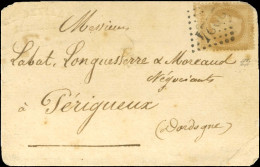 Messieurs
Labat, Longueserre & Moreaud
Négociants
à Périgueux
(Dordogne)